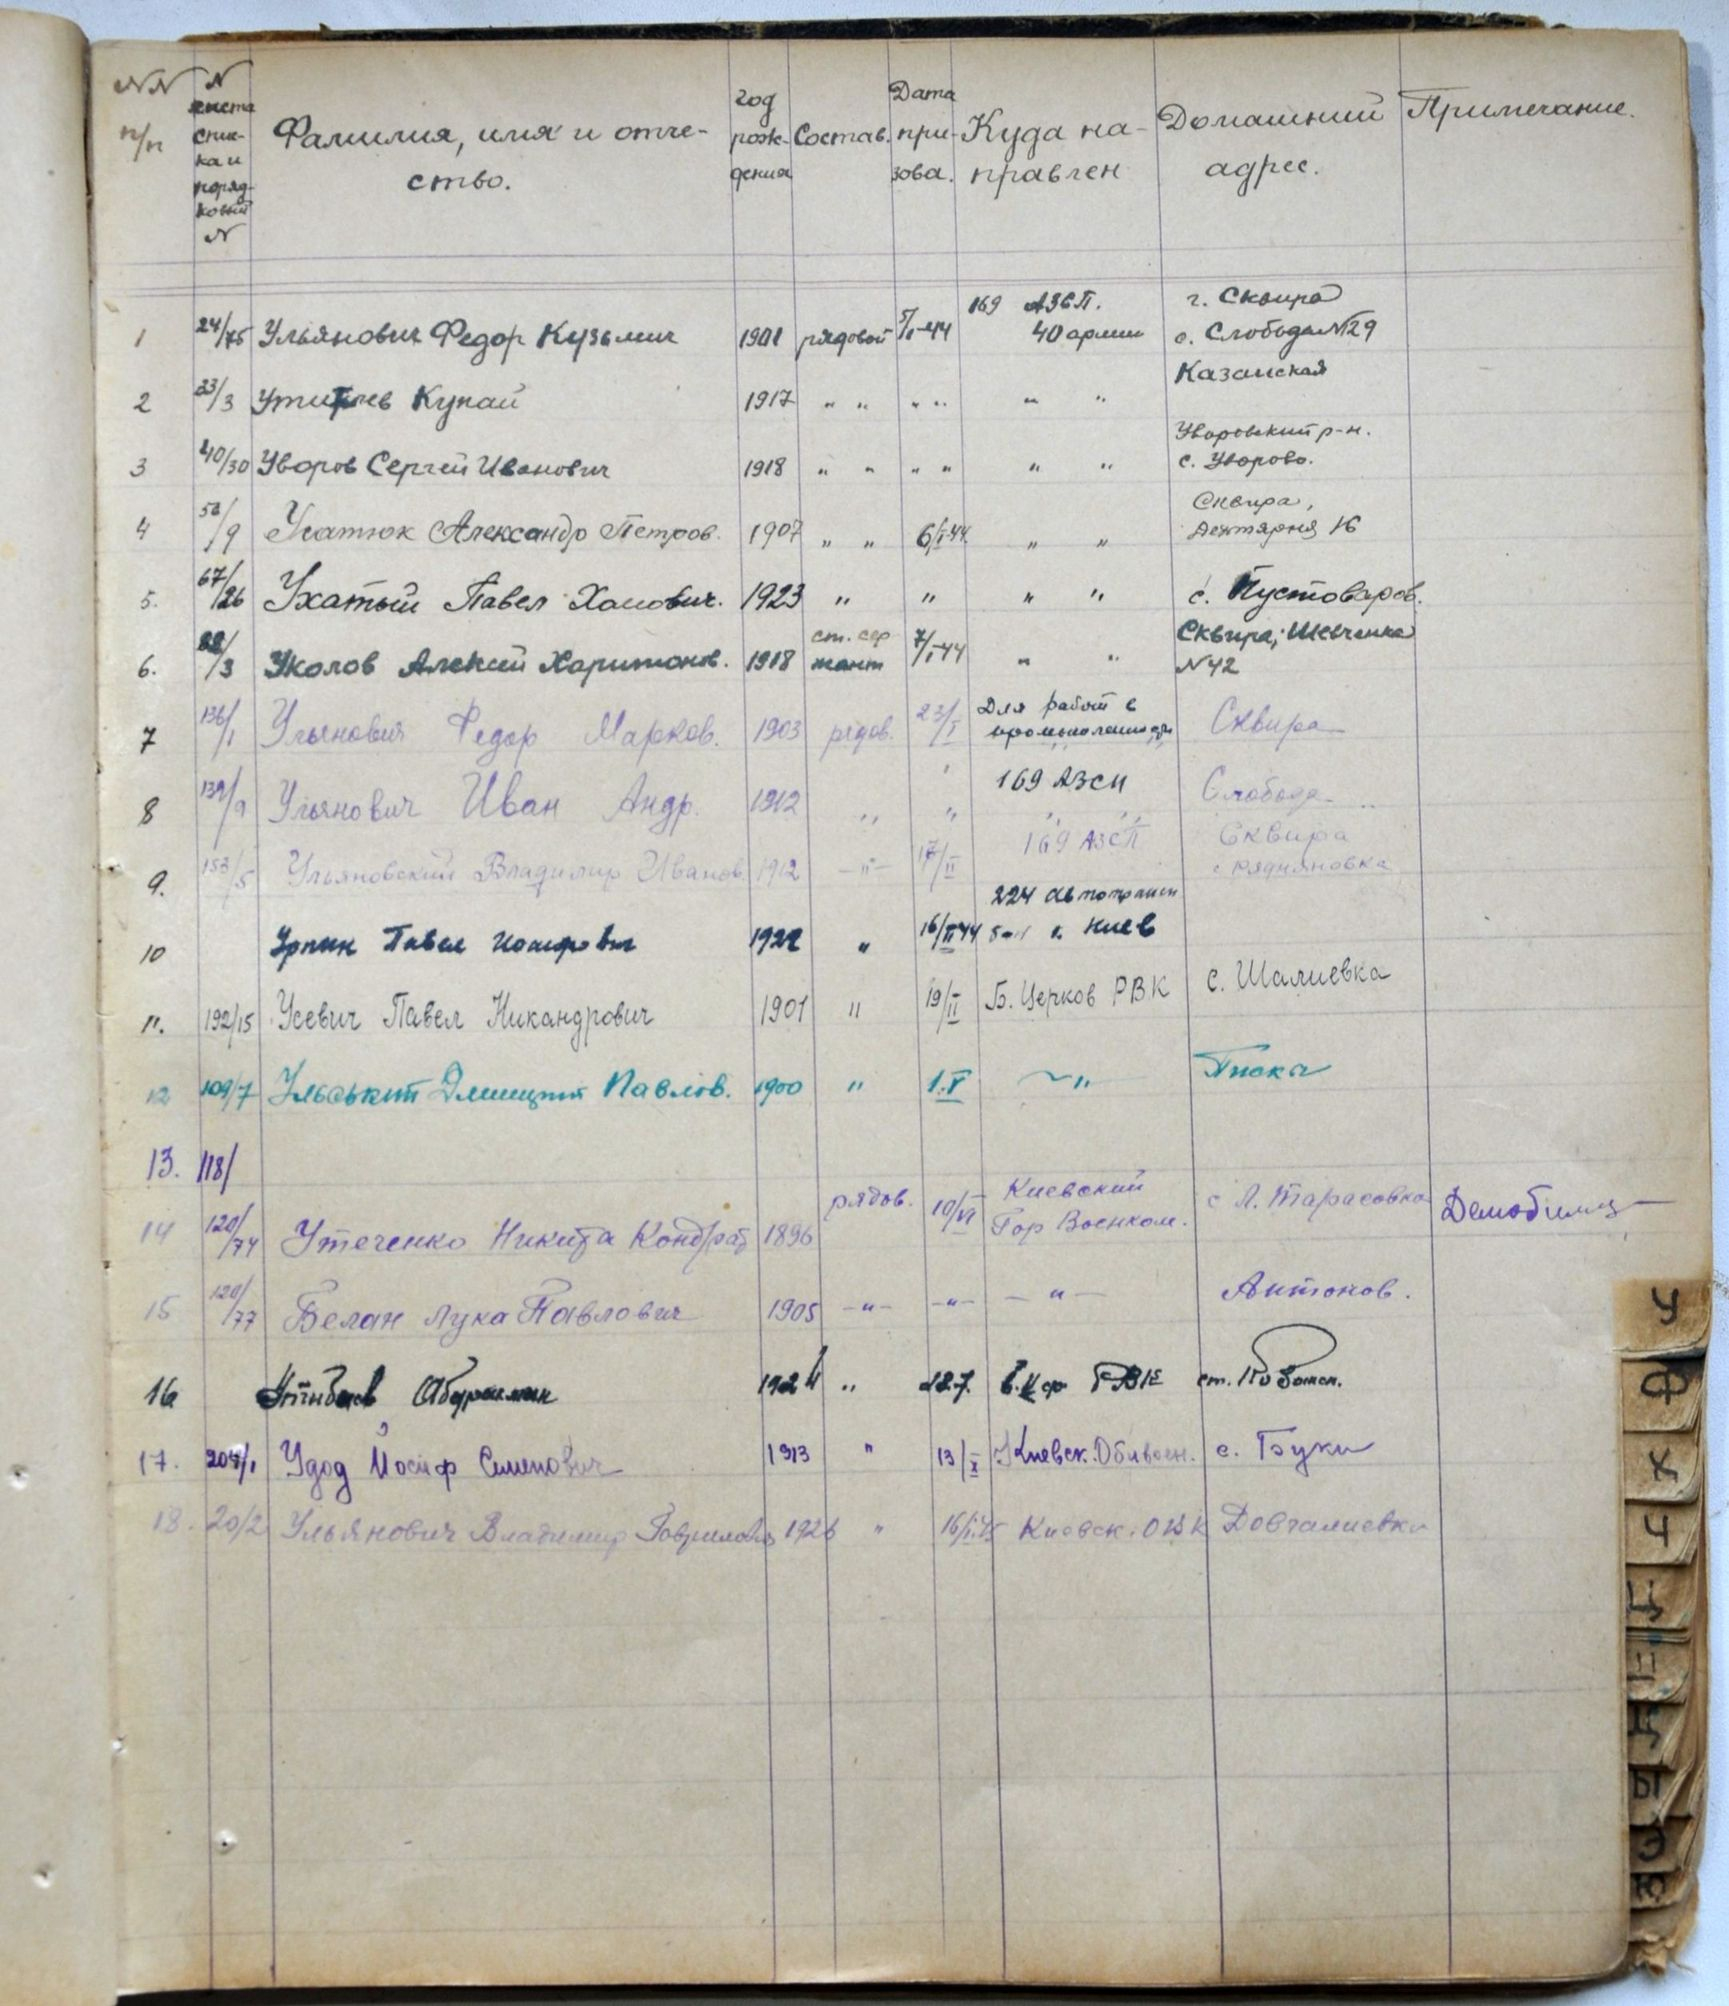 NN п/п | N листа списка и порядковый N | Фамилия, имя и отчество. | год рождения | Состав. | Дата призова. | Куда направлен | Домашний адрес. | Примечание.
1 | 24/75 | Ульянович Федор Кузьмич | 1901 | рядовой | 5/I-44 | 169 АЗСП. 40 армии | г. Сквира с. Слобода №29
2 | 33/3 | Купай | 1917 | " " | " " | " " | Казанская
3 | 40/30 | Уворов Сергей Иванович | 1918 | " " | " " | " " | Уваровский р-н. с. Уворово.
4 | 58/9 | Усатюк Александр Петров. | 1907 | " " | 6/I-44 | " " | Сквира, Дехтярня 16
5. | 67/26 | Ухатый Павел | 1923 | " | " | " " | с. Пустоваров.
6. | 88/3 | Уколов Алексей Харитонов. | 1918 | ст. сержант | 7/I-44 | " " | Сквира, Шевченка N42
7 | 136/1 | Ульянович Федор Марков. | 1903 | рядов. | 23/I | Для работ в | Сквира
8 | 139/9 | Ульянович Иван Андр. | 1912 | " | " | 169 АЗСП " " | Слобода
9. | 153/5 | Ульяновский Владимир Иванов. | 1912 | -"- | 17/II | 169 АЗСП | Сквира с. Рядняновка
10 | Павел | "| 16/II 44 | 224 г. Киев
11. | 192/15 | Усевич Павел Никандрович | 1901 | " | 19/II | Б. Церков РВК | с. Шалиевка
12 | 109/7 | Павлов. | 1900 | " | 1.V | -"- | Пиока
13. | 118/
14 | 120/74 | Утеченко Никита Кондрат | 1896 | рядов. | 10/VI | Киевский Гор Военком. | с Л. Тарасовка | Демобилиз
15 | 120/77 | Белан Лука Павлович | 1905 | -"- | -"- | -"- | Антонов.
16 | 1924 | " | 12.7. | Б. Цер РВК | ст.
17. | 204/1 | Удод Йосиф Семенович | 1913 | " | 13/X | Киевск. Облвоен. | с. Буки
18. | 20/2 | Ульянович Владимир Гаврилович | 1926 | " | Киевск. ОВК | Довгалиевка
У
Ф
Х
Ч
Ц
Ы
Э
Ю